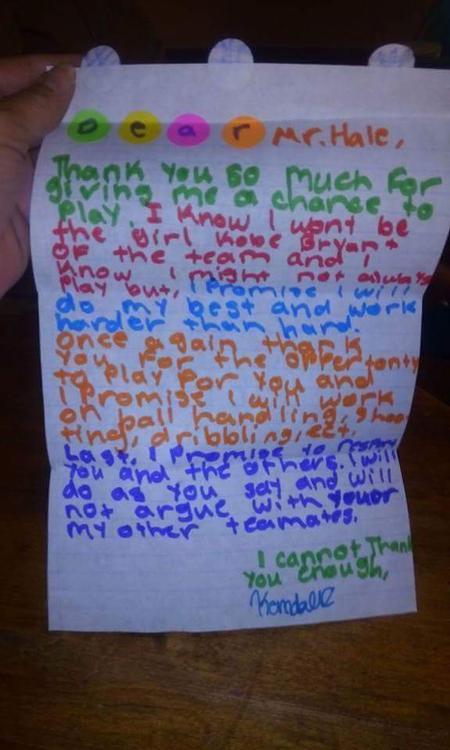 Dear Mr. Hale,
Thank you so much for
giving me a chance to
play. I know I wont be
the girl Kobe Bryant
of the team and I
know I might not always
play but, I promise I will
do my best and work
harder than hard.
Once again thank
you for the oppertonty
to play for you and
I promise I will work
on ball handling, shoo
ting, dribbling, ect.
Last, I promise to respect
you and the others. I will
do as you say and will
not argue with you or
my other teamates.
I cannot Thank
You enough,